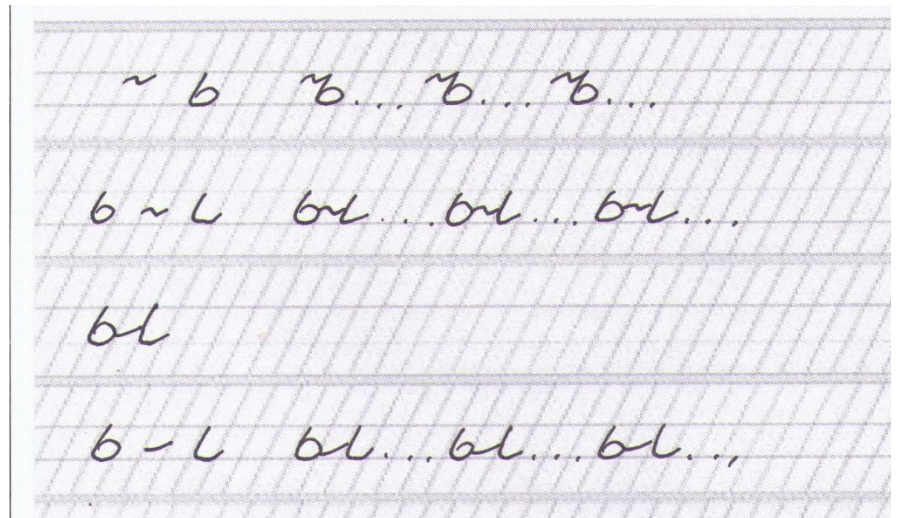 ~ ь ъ... ъ... ъ...
ь ~ ι ы...ы...ы...
ы
ь - ι ы...ы...ы..,